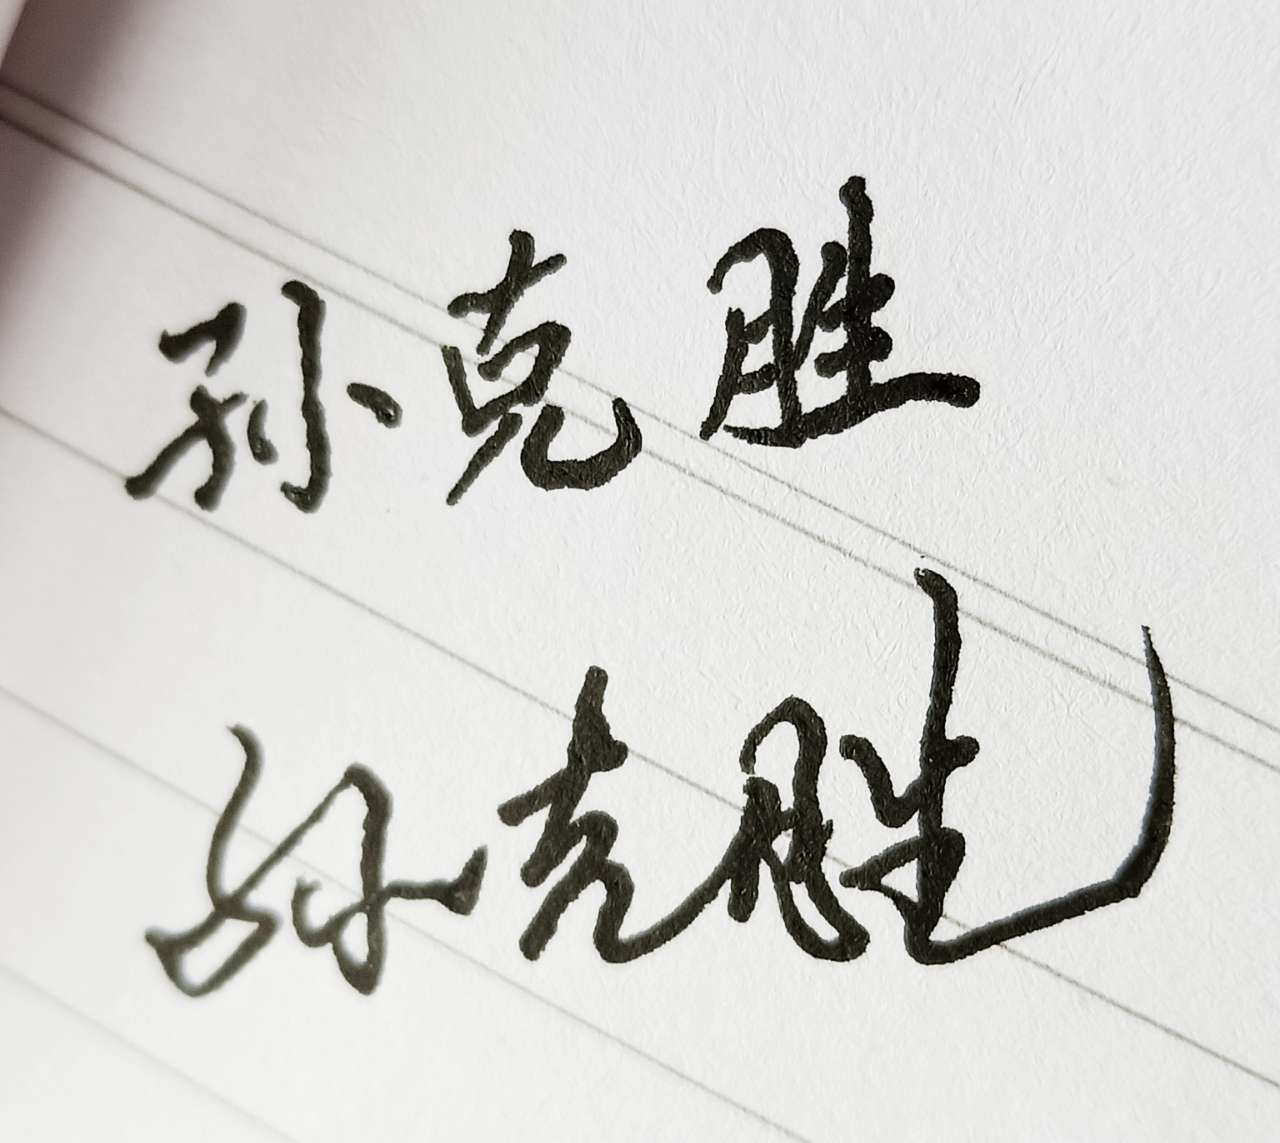 孙克胜
孙克胜